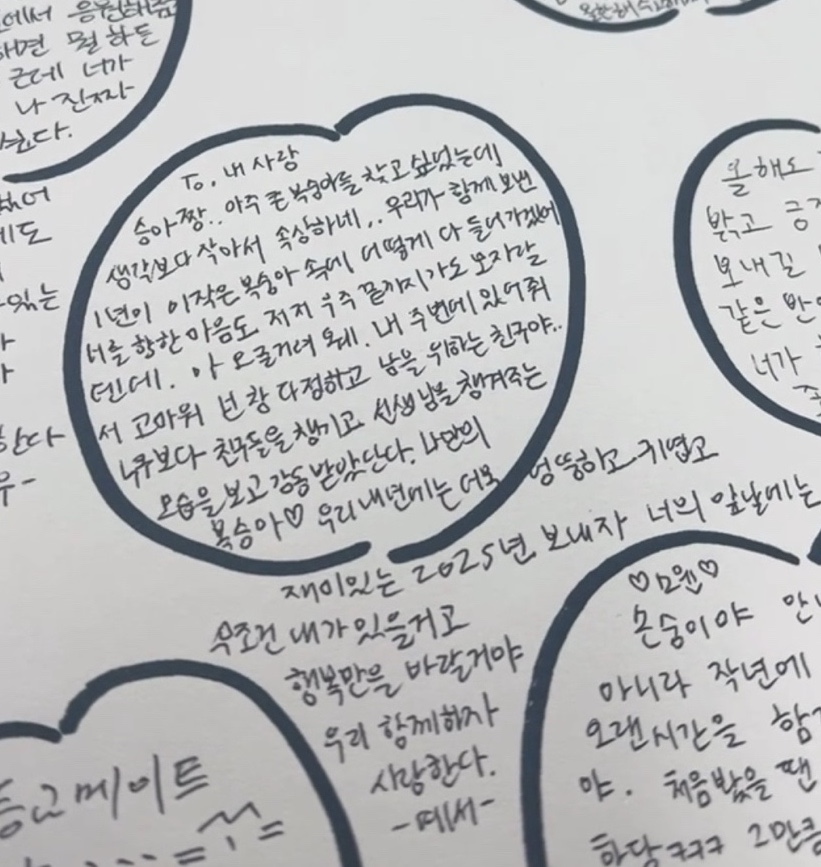 에서 응원해줄
해면 뭘 하든
근데 너가
나 진짜
To. 내 사랑
승아짱.. 아주 큰 복숭아를 찾고 싶었는데
생각보다 작아서 속상하네.. 우리가 함께 보낸
1년이 이작은 복숭아 속에 어떻게 다 들어가겠어
너를 향한 마음도 저저 우주 끝까지가도 모자랄
텐데. 아 오글거려 우웨. 내 주변에 있어줘
서 고마워 넌 참 다정하고 남을 위하는 친구야..
누구보다 친구들을 챙기고 선생님을 챙겨주는
모습을 보고 감동 받았단다. 나만의
복숭아♡ 우리 내년에는 더욱 엉뚱하고 귀엽고
재미있는 2025년 보내자 너의 앞날에는
무조건 내가 있을거고
행복만을 바랄거야
우리 함께하자
사랑한다.
올해도
밝고 긍정
보내길
같은 반
너가
♡모웬♡
손승이야
아니라 작년에
오랜시간을 함께
야. 처음봤을 땐
하당ㅋㅋㅋ 2만큼
등교메이트